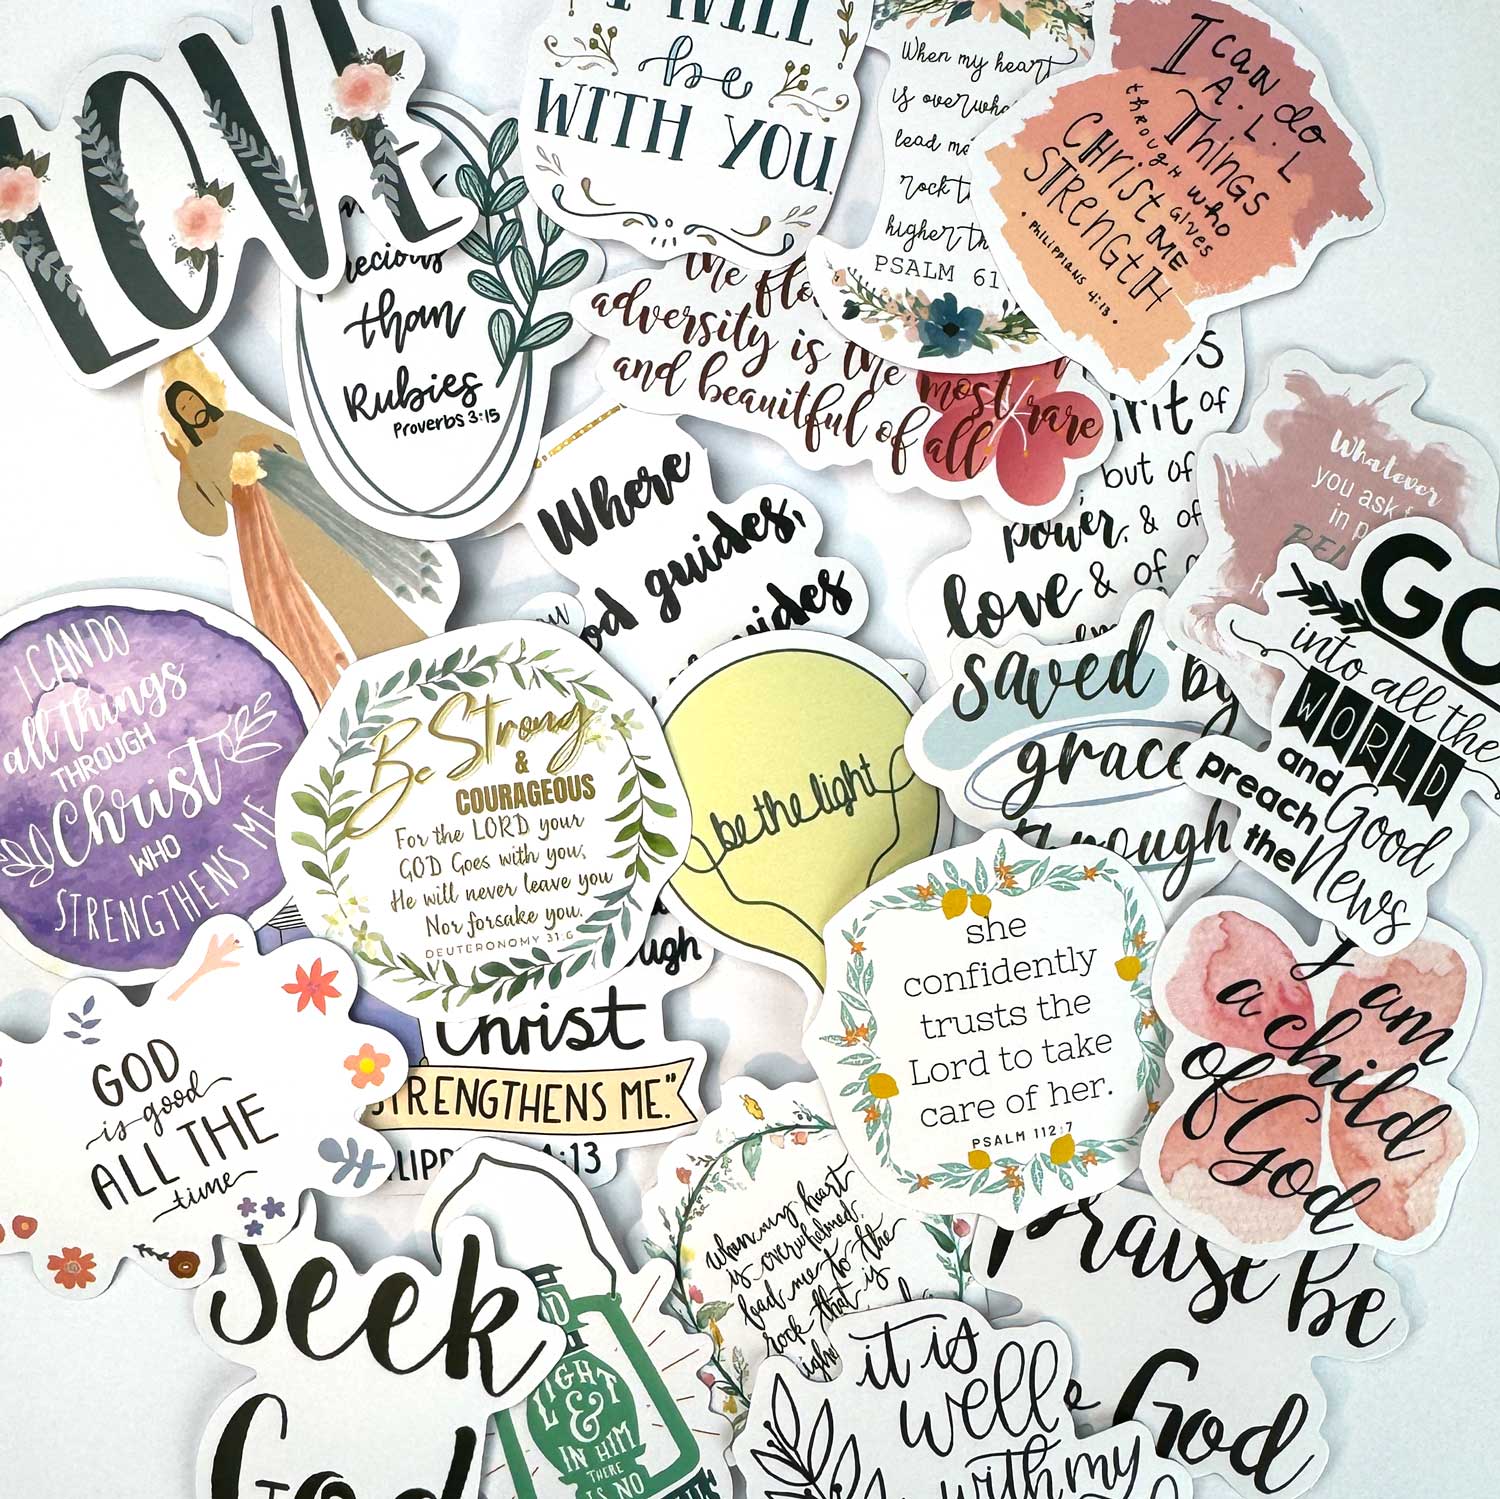 LOVE
WILL
be
WITH YOU
When my heart
is
lead
higher
PSALM 61
I can do
A.L.L
Things
through who
Christ Gives
ME
STRENGTH
• PHILIPPIANS 4:13 •
than
Rubies
Proverbs 3:15
the
adversity is the most rare
and beautiful of all
of
but of
power, & of
love & of
Where
guides,
Whatever
you ask
in
GO
into all the
WORLD
and Good
preach
the News
saved by
grace
through
I CAN DO
all things
THROUGH
Christ
WHO
STRENGTHENS ME
Be Strong
&
COURAGEOUS
For the LORD your
GOD Goes with you;
He will never leave you
Nor forsake you.
DEUTERONOMY 31:6
be the light
she
confidently
trusts the
Lord to take
care of her.
PSALM 112:7
I am
a child
of God
GOD
is good
ALL THE
time
Christ
STRENGTHENS ME."
4:13
when my heart
is overwhelmed
lead me to the
rock that is
Praise be
God
Seek
God
LIGHT
&
IN HIM
THERE
IS NO
it is
well
with my